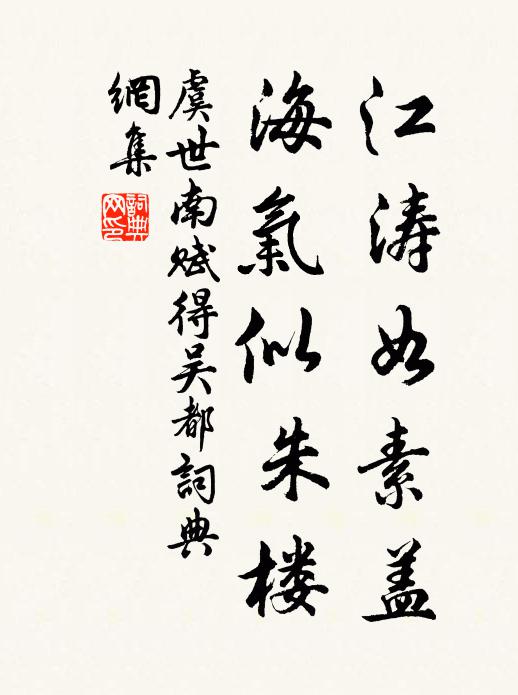 江涛如素盖
海氣似朱楼
虞世南赋得吴都詞典
網集
詞典
网印